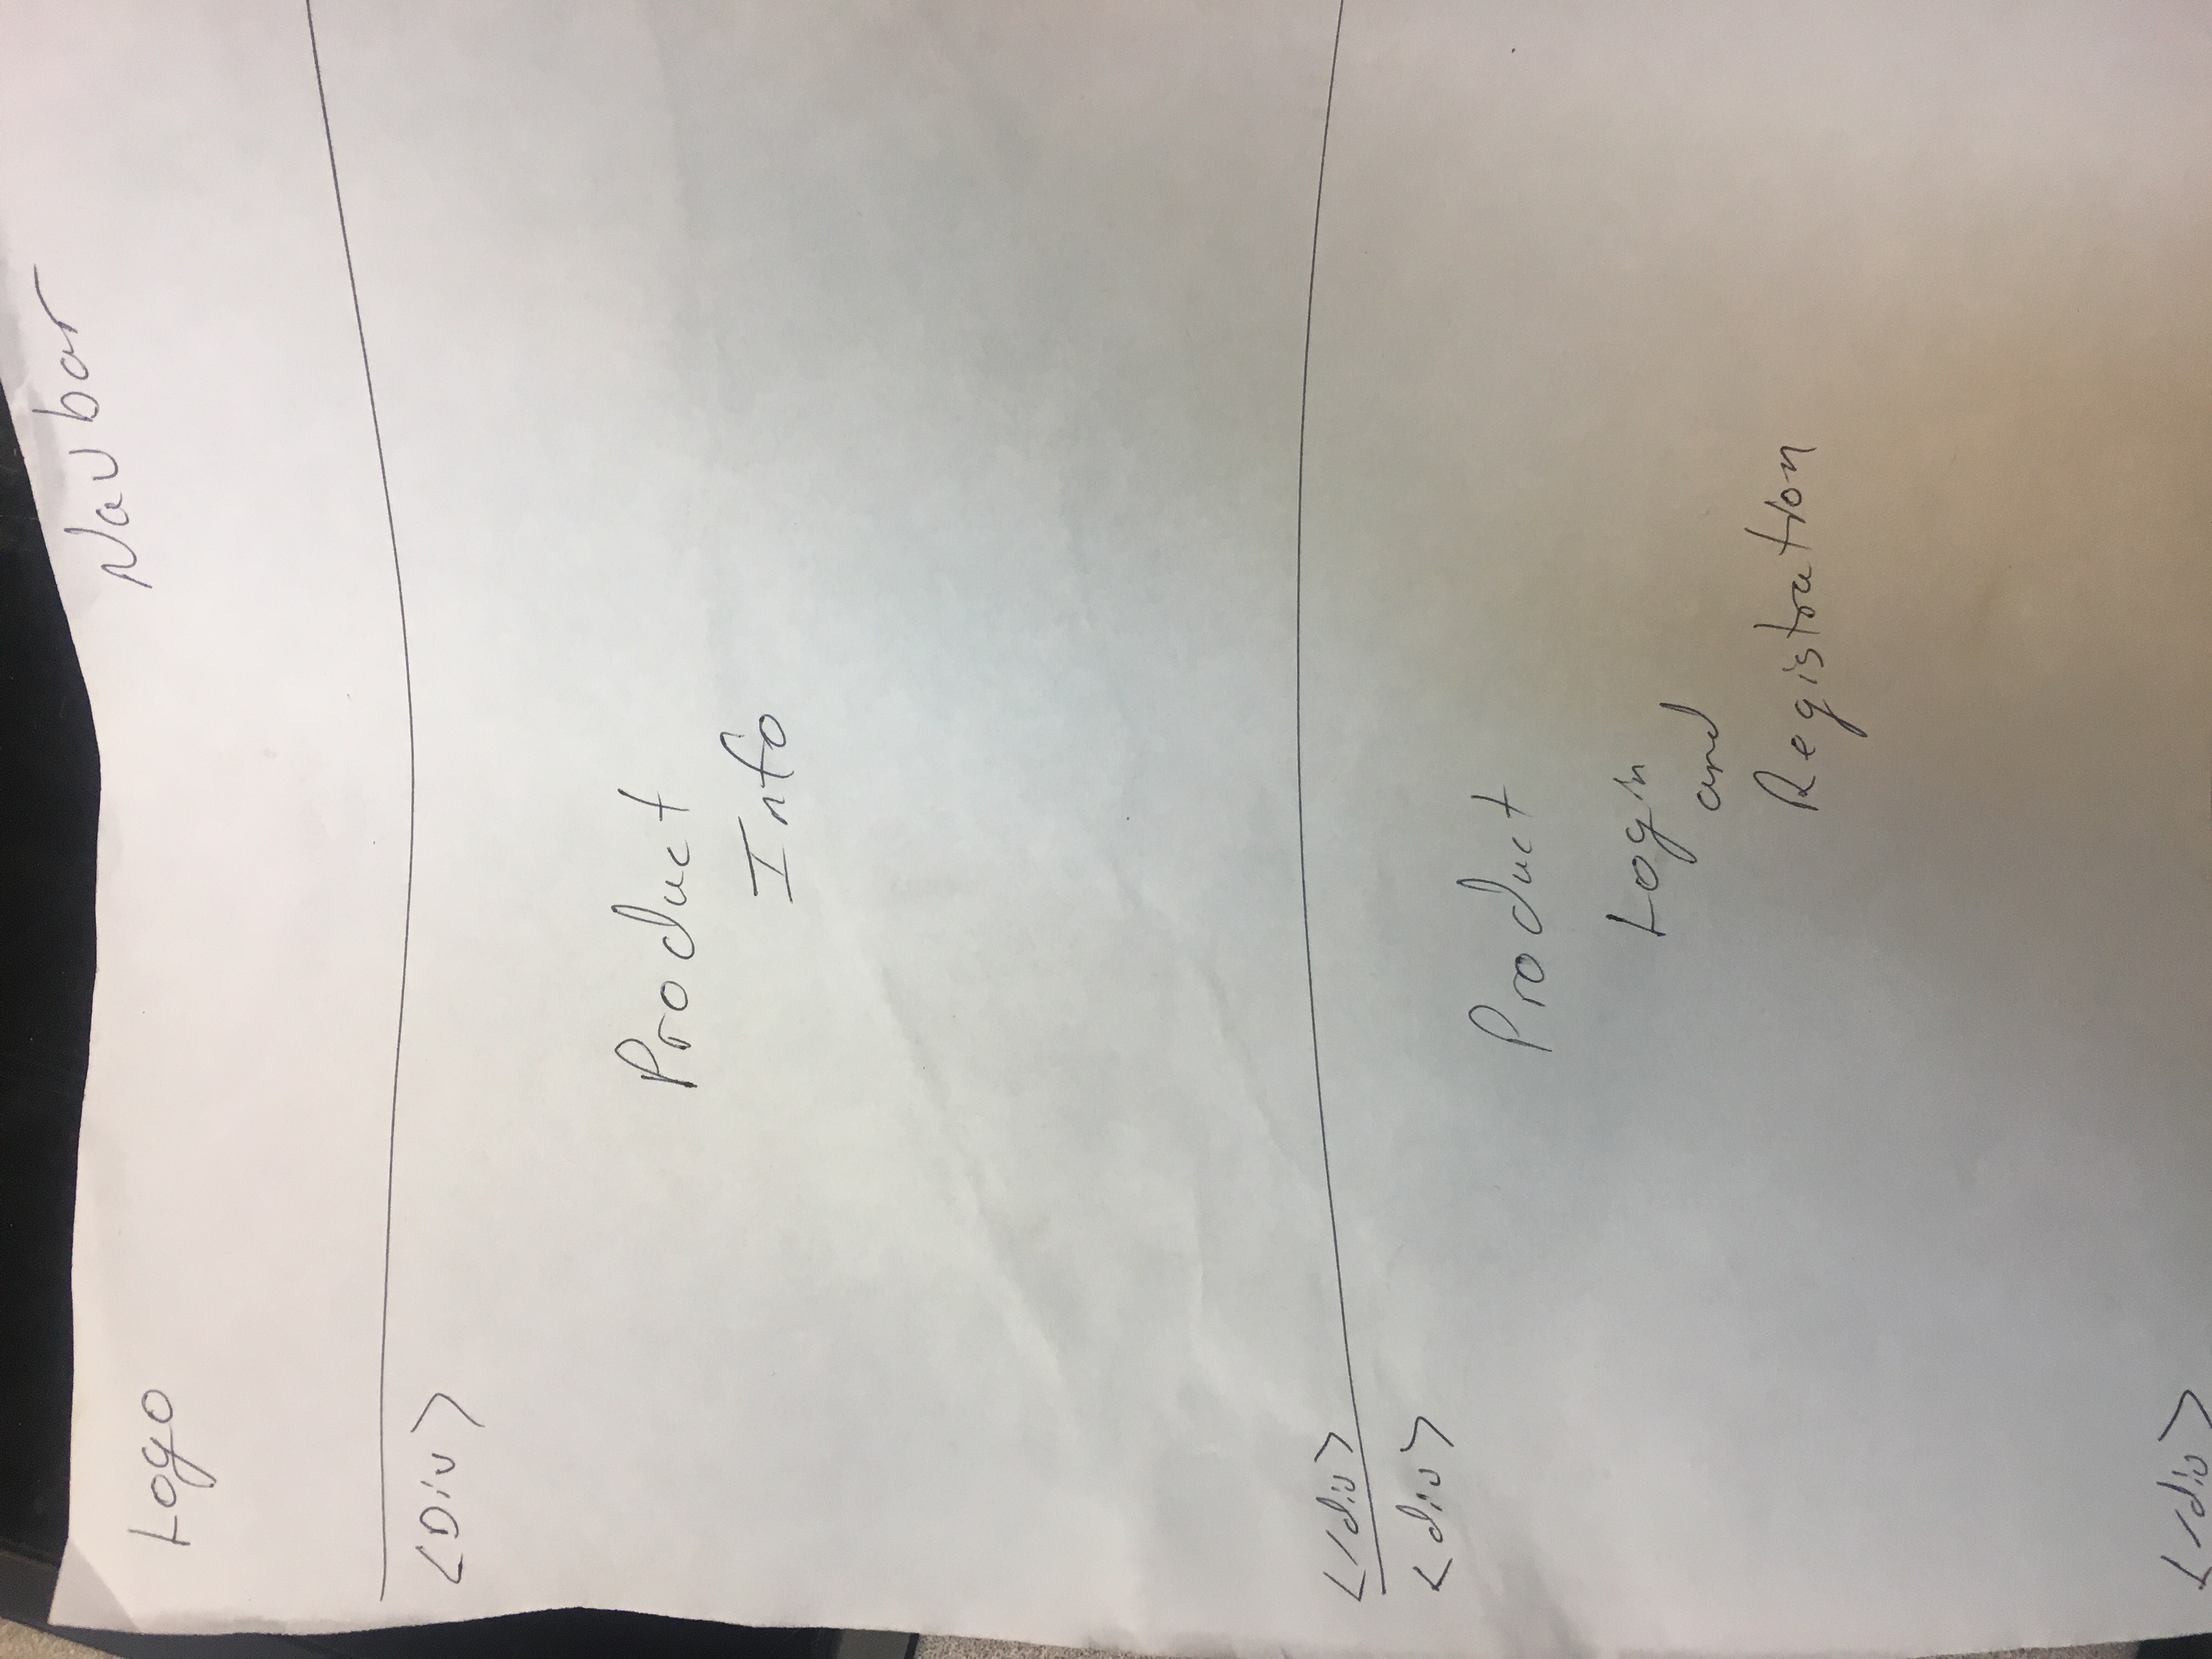 Logo
Navbar
<Div>
Product
Info
</div>
<div>
Product
Login
and
Registration
</div>